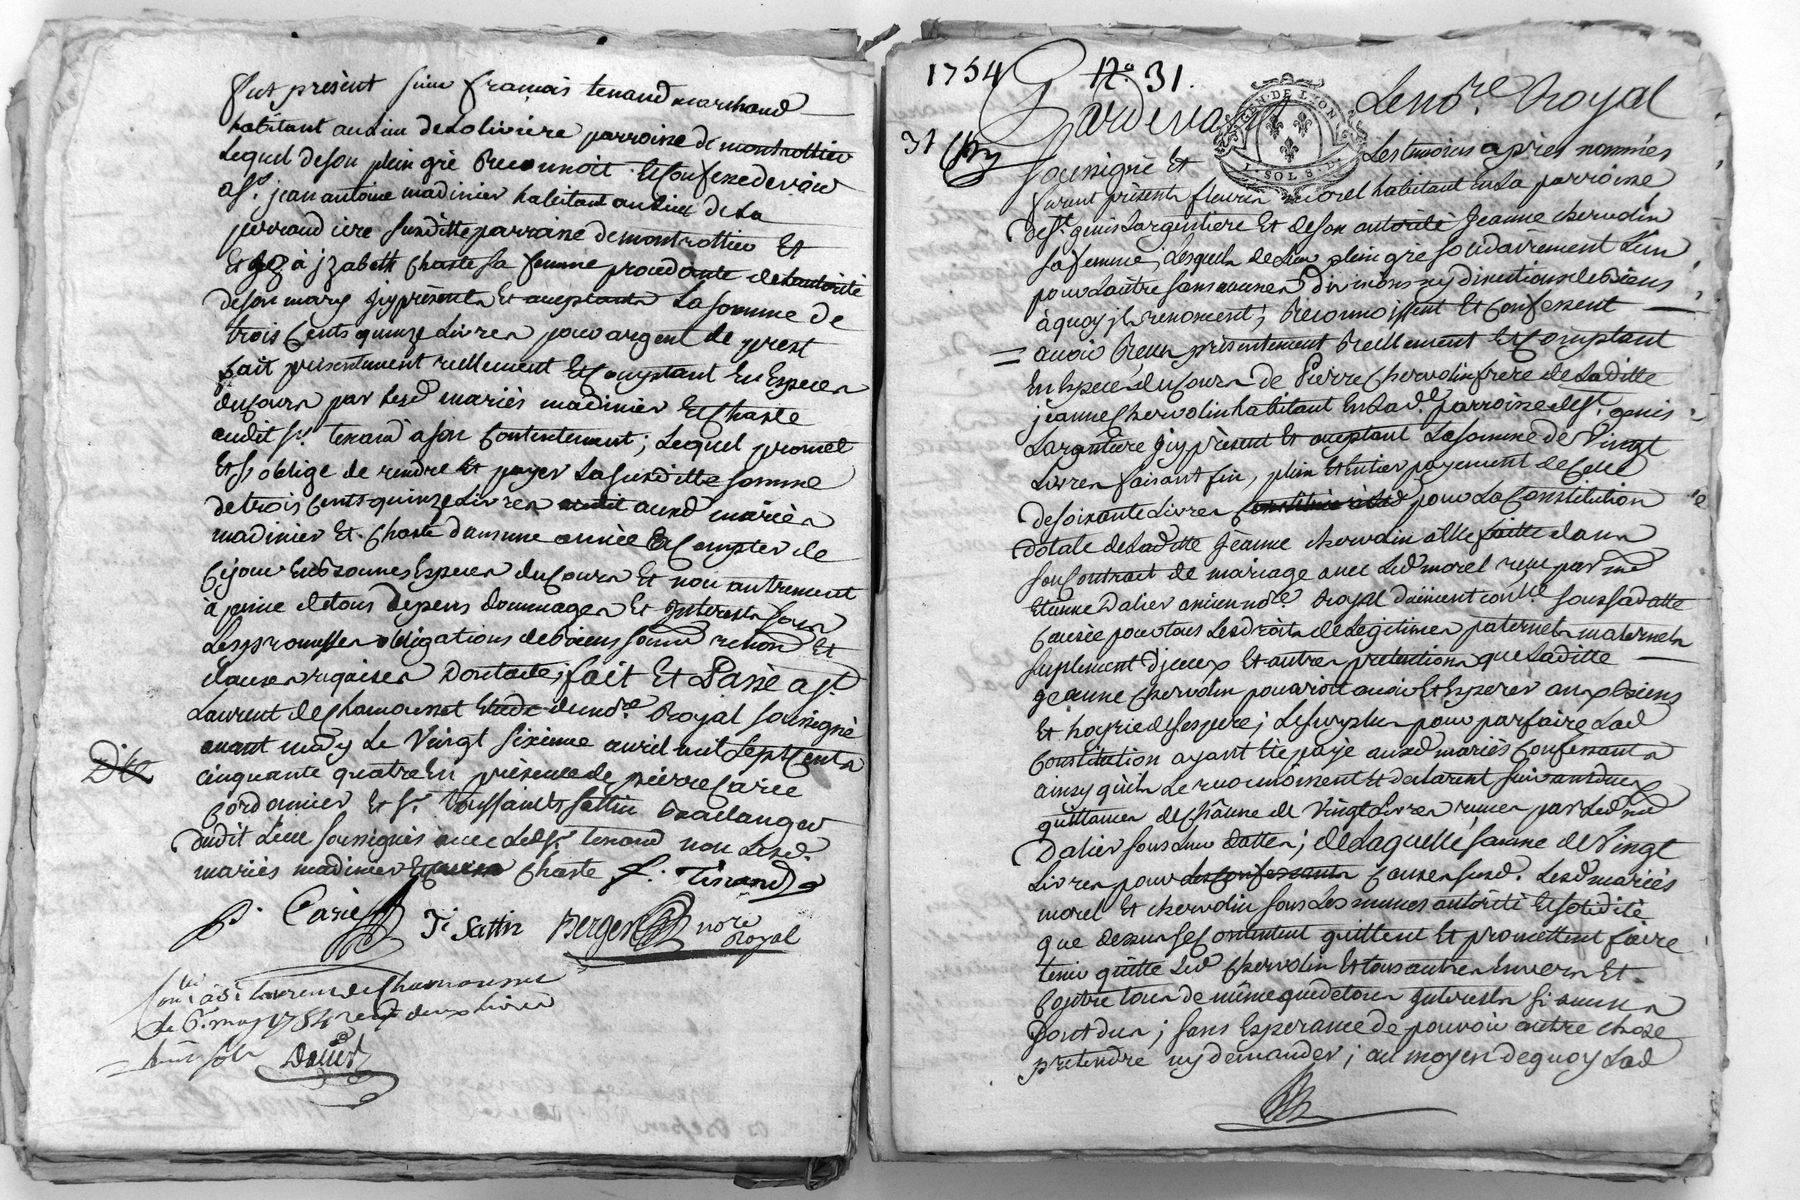 fut présent sieur françois tenaud marchand
habitant au lieu de lolivière parroisse de montrottier
Lequel de son plein gré Reconnoit Et Confesse devoir
a sr. jean antoine madinier habitant au lieu de La
jurraudière susditte parroisse de montrottier Et
Et à jzabeth Charte sa femme procedante de Lautorité
de son mary jcy présents Et acceptants La somme de
trois Cents quinze Livres pour argent de prest
fait presentement reellement Et Comptant En Especes
du Cours par Lesd mariés madinier Et Charte
audit sr. tenaud a son Contentement; Lequel promet
Et s'oblige de rendre Et payer La susditte somme
de trois Cents quinze Livres auxd mariés
madinier Et Charte dans une année à Compter de
Ce jour En bonnes Especes du Cours Et non autrement
à peine de tous depens dommages Et Interests sous
Les promesses obligations de biens soumis renon Et
Clauses requises Dont acte; fait Et Passé a St.
Laurent de Chamousset Etude du nore. Royal soussigné
avant midy Le Vingt sixieme avril mil sept Cents
Cinquante quatre En présence de pierre Carie
Cordonnier Et sr. toussaint sattin Boulanger
dudit Lieu soussignés avec Ledsr. tenaud non Lesd.
mariés madinier Et Charte f. Tenaud
P. Carie T. Sattin Berger nore Royal
Conlé à St Laurent de Chamousset
Le 6e. may 1754 reçu deux livres
huit sols Dalier
1754 No. 31.
31 Pardevant Le nore. Royal
GEN. DE LION
SOLS
soussigné Et Les temoins après nommés
furent présents fleury morel habitant En La parroisse
de St. genis Largentiere Et de son autorité Jeanne chervolin
sa femme, Lesquels de Leur plein gré solidairement L'un
pour L'autre sans aucunes divisions ny directions de biens
à quoy jls renoncent; Reconnoissent Et Confessent
avoir Reçu présentement Réellement Et Comptant
En Especes du Cours de Pierre Chervolin frere de La ditte
jeanne Chervolin habitant En Lade. parroisse de St. genis
Largentiere jcy présent Et acceptant La somme de Vingt
Livres faisant fin, plein Et Entier payement de Celle
de soixante Livres pour La Constitution
dotale de La ditte Jeanne chervolin à Elle faitte dans
son Contrat de mariage avec Led morel reçu par me
Etienne Dalier ancien nore. Royal duement conllé sous sa datte
Causée pour tous Les droits de Legitimes paternels maternels
suplement d'jceux Et autres pretentions que La ditte
jeanne chervolin pouvroit avoir Et Esperer aux Biens
Et hoyrie de ses pere; Le surplus pour parfaire Lad
Constitution ayant été payé auxd mariés Confessants
ainsy qu'ils Le reconnoissent Et declarent suivant deux
quittances de Chacune de Vingt Livres reçues par Led me
Dalier sous Leur dattes; de Laquelle somme de Vingt
Livres pour Causes susd. Lesd mariés
morel Et chervolin sous Les mêmes autorité Et solidité
que dessus se Contentent quittent Et promettent faire
tenir quitte Led Chervolin Et tous autres Envers Et
Contre tous de même que de tous Interests si aucuns
sont dus; sans Esperance de pouvoir autre chose
pretendre ny demander; au moyen de quoy Lad